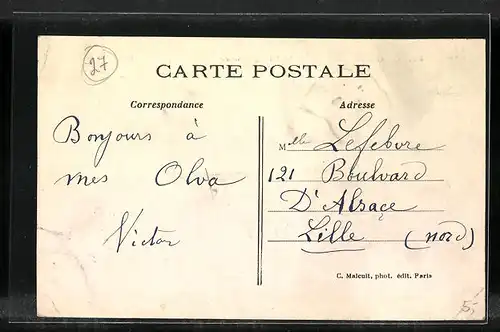 27
CARTE POSTALE
Correspondance
Adresse
Bonjours à
mes Olva
Victor
Mlle Lefebvre
121 Boulvard
D'Alsace
Lille (nord)
C. Malcuit, phot. édit. Paris
5,-